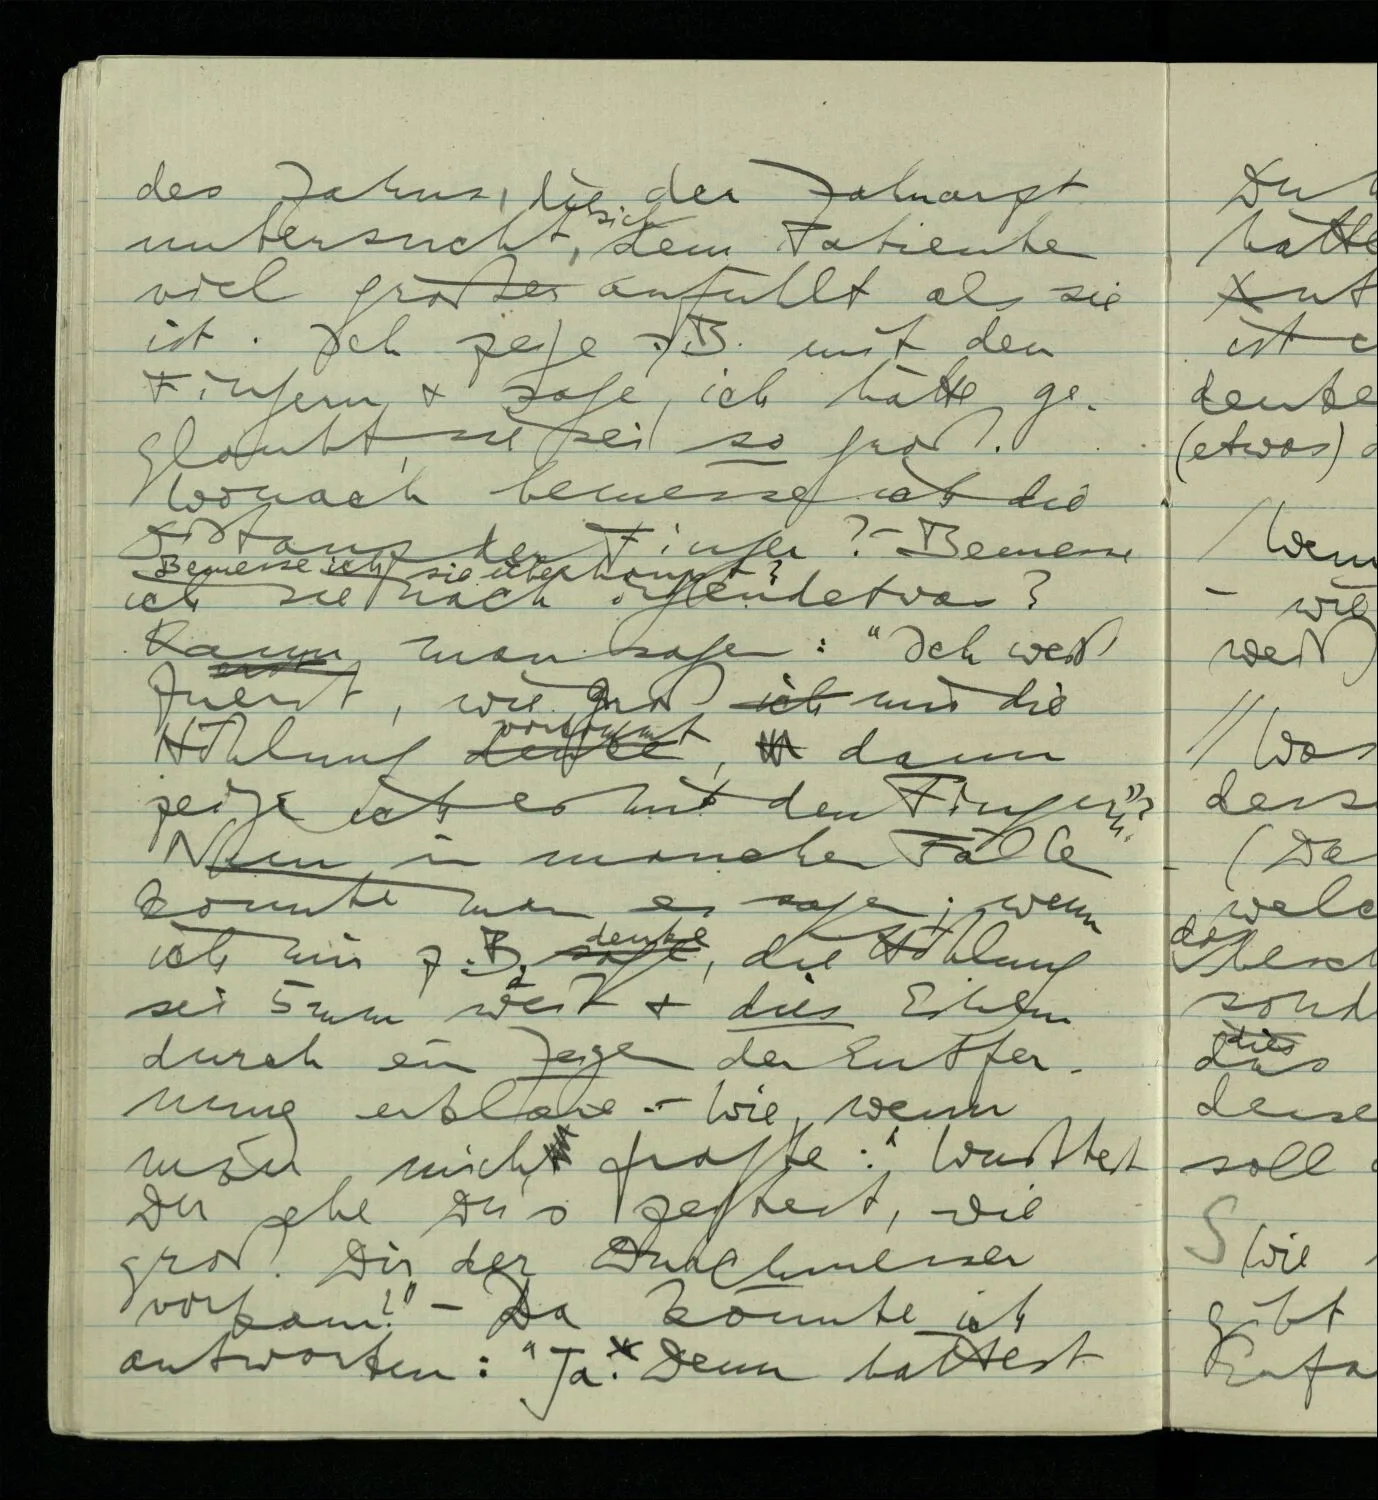 des Zahns, die der Zahnarzt
untersucht, sich dem Patiente
viel größer anfühlt als sie
ist. Ich zeige z.B. mit den
Fingern & sage, ich hätte ge-
glaubt, sie sei so groß.
Wonach bemesse ich die
Distanz der Finger? – Bemesse
Bemesse ich sie überhaupt?
ich sie nach irgendetwas?
Kann man sagen: "Ich weiß
erst
zuerst, wie groß ich mir die
vorkommt
Höhlung denke, dann
zeige ich es mit den Fingern"?
Nun in manchen Fälle
könnte man es sagen; wenn
denke
ich mir z.B. sage, die Höhlung
sei 5mm weit & dies Einem
durch ein Zeigen der Entfer-
nung erkläre. – Wie, wenn
man mich fragte: "Wußtest
Du ehe Du's zeigtest, wie
groß Dir der Durchmesser
vorkam?" – Da könnte ich
antworten: "Ja. Denn hättest
Du
hätte
ist
deute
(etwas)
/ Wenn
– wie
weiß
// Was
ders
(De
welc
das
besch
sond
dies
das
dense
soll
S Wie
gibt
Erfa